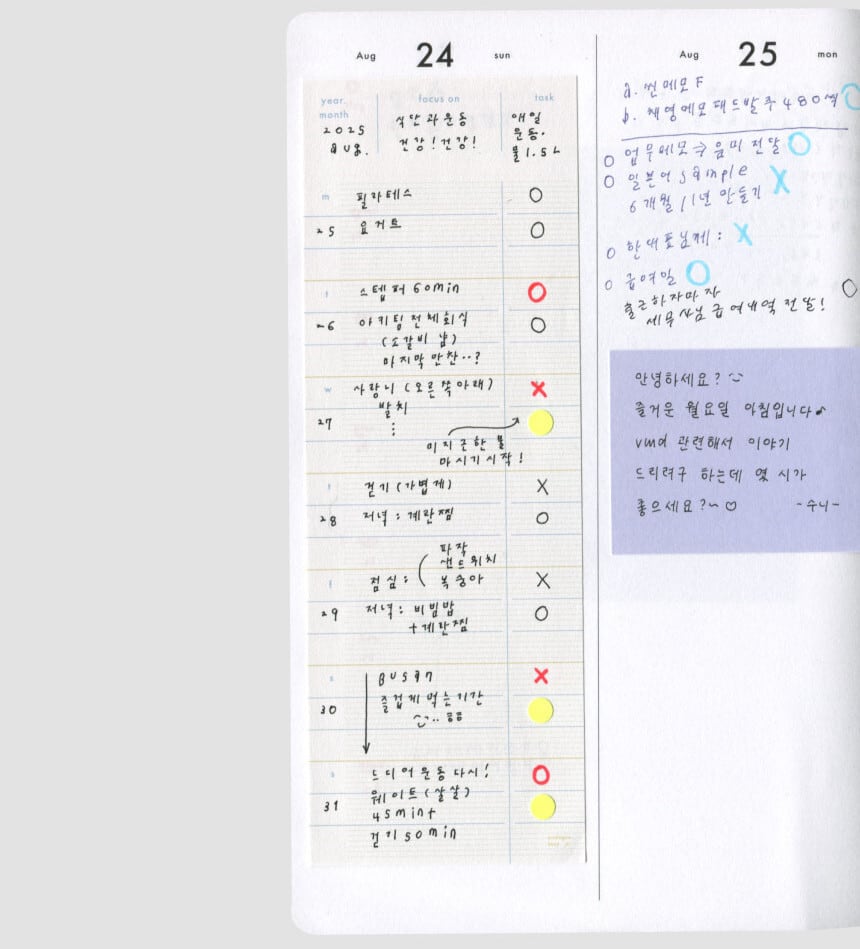 Aug 24 sun
year. month
focus on
task
2025
aug.
식단과운동
건강! 건강!
매일
운동.
물1.5L
m
25
필라테스
O
요거트
O
t
26
스텝퍼 60min
O
아키팀전체회식
O
(소갈비 냠)
마지막 만찬..?
w
27
사랑니 (오른쪽아래)
X
발치
⋮
미지근한 물
마시기시작!
t
28
걷기 (가볍게)
X
저녁 : 계란찜
O
f
29
점심 :
파작
샌드위치
복숭아
X
저녁 : 비빔밥
O
+계란찜
s
30
Busan
X
즐겁게 먹는기간
s
31
드디어 운동 다시!
O
웨이트 (살살)
45min+
걷기 50min
Aug 25 mon
a. 씬메모 F
b. 체영메모패드발주 480
O 업무메모 → 음미 전달 O
O 일본어 sample X
6개월/1년 만들기
O 한대표님께 : X
O 급여일 O
출근하자마자
세무사님 급여내역 전달! O
안녕하세요?
즐거운 월요일 아침입니다♪
vmd 관련해서 이야기
드리려구 하는데 몇 시가
좋으세요?~ ♡ -수니-